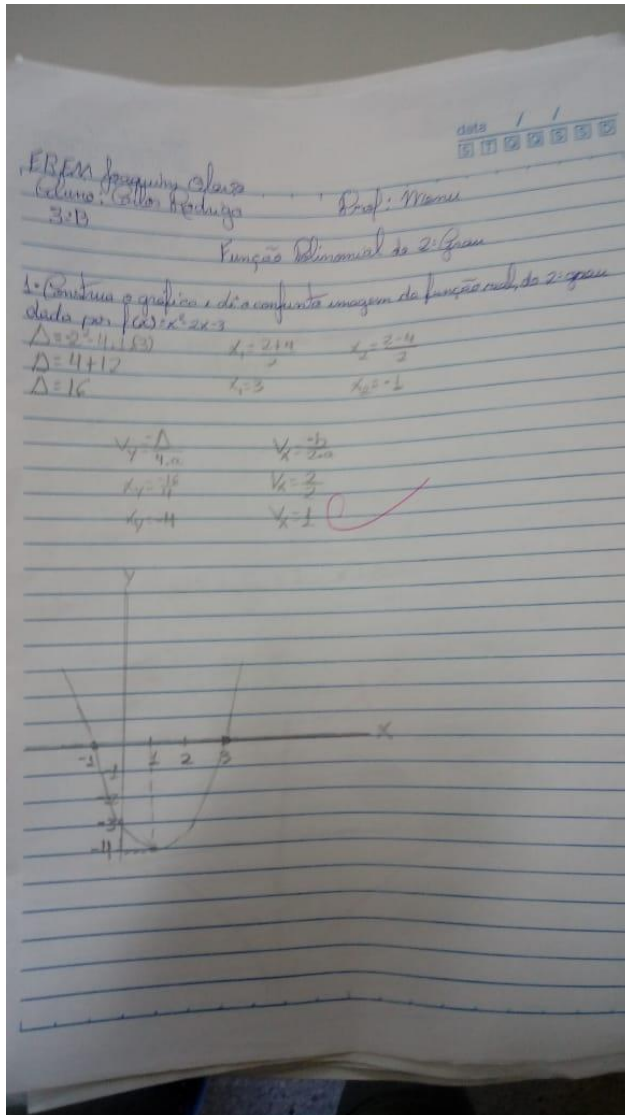 data / /
S T Q Q S S D
EREM Joaquim Olavo
Aluno: Rodrigo
3:B
Prof: Manu
Função Polinomial do 2º Grau
1- Construa o gráfico e dê o conjunto imagem da função real, do 2º grau
dada por f(x)=x²-2x-3
Δ=-2²-4.1.(-3)
Δ=4+12
Δ=16
X₁=2+4/2
X₁=3
X₂=2-4/2
X₂=-1
Vy=-Δ/4.a
Xy=-16/4
Xy=-4
Vx=-b/2.a
Vx=2/2
Vx=1
Y
X
-1 1 2 3
-1
-2
-3
-4